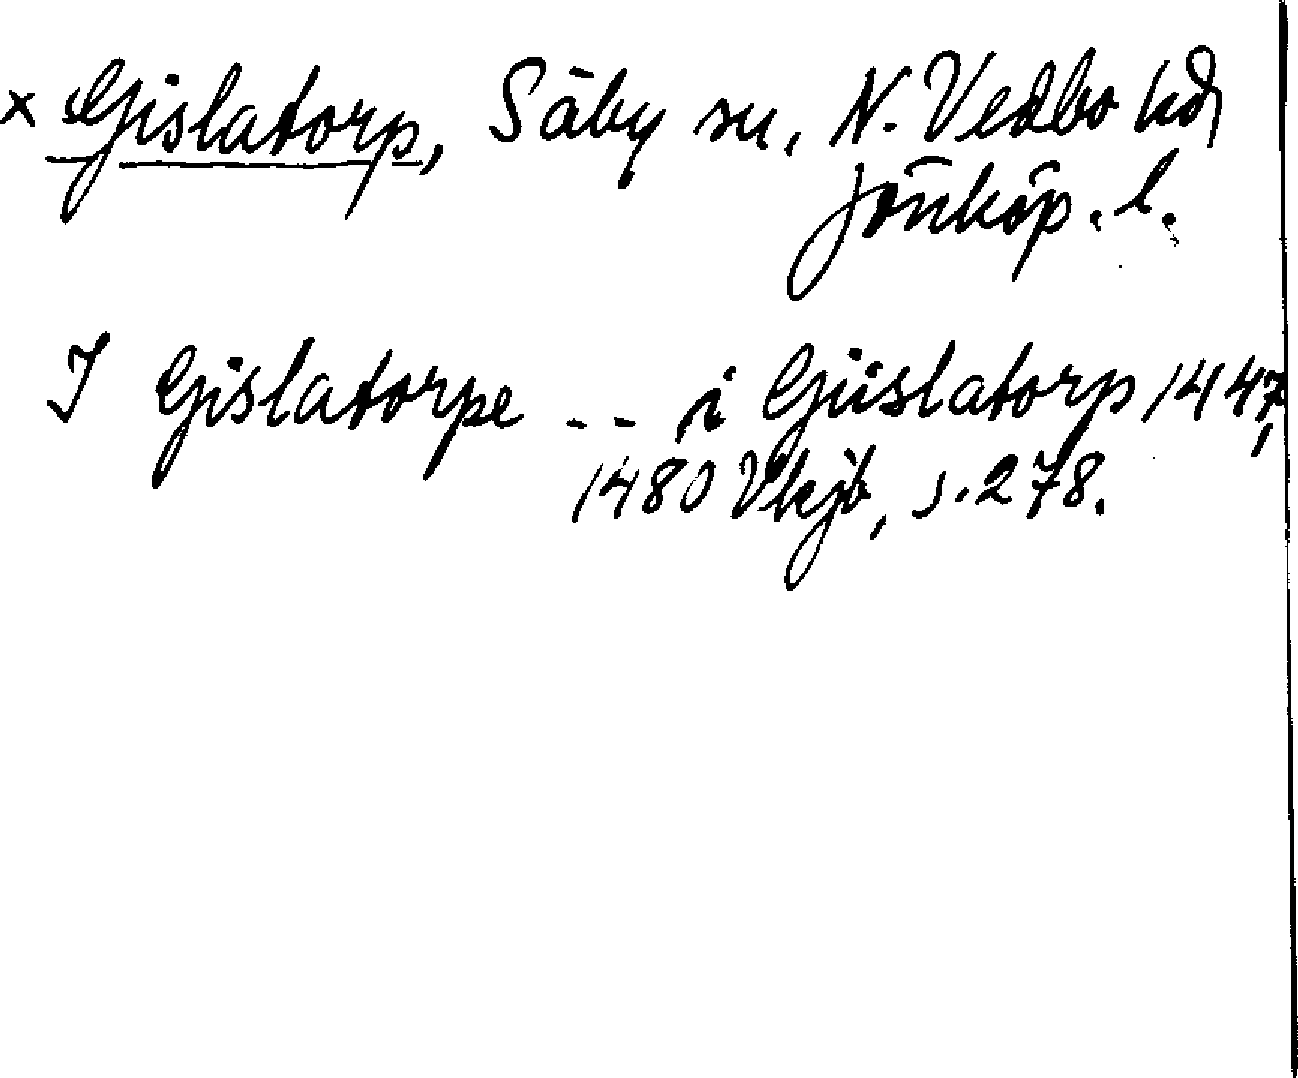 x Gislatorp, Säby sn, N. Vedbo hd
Jönköp. l.
I Gislatorpe -- i Giislatorp 1447,
1480 Vkjb, s. 278.